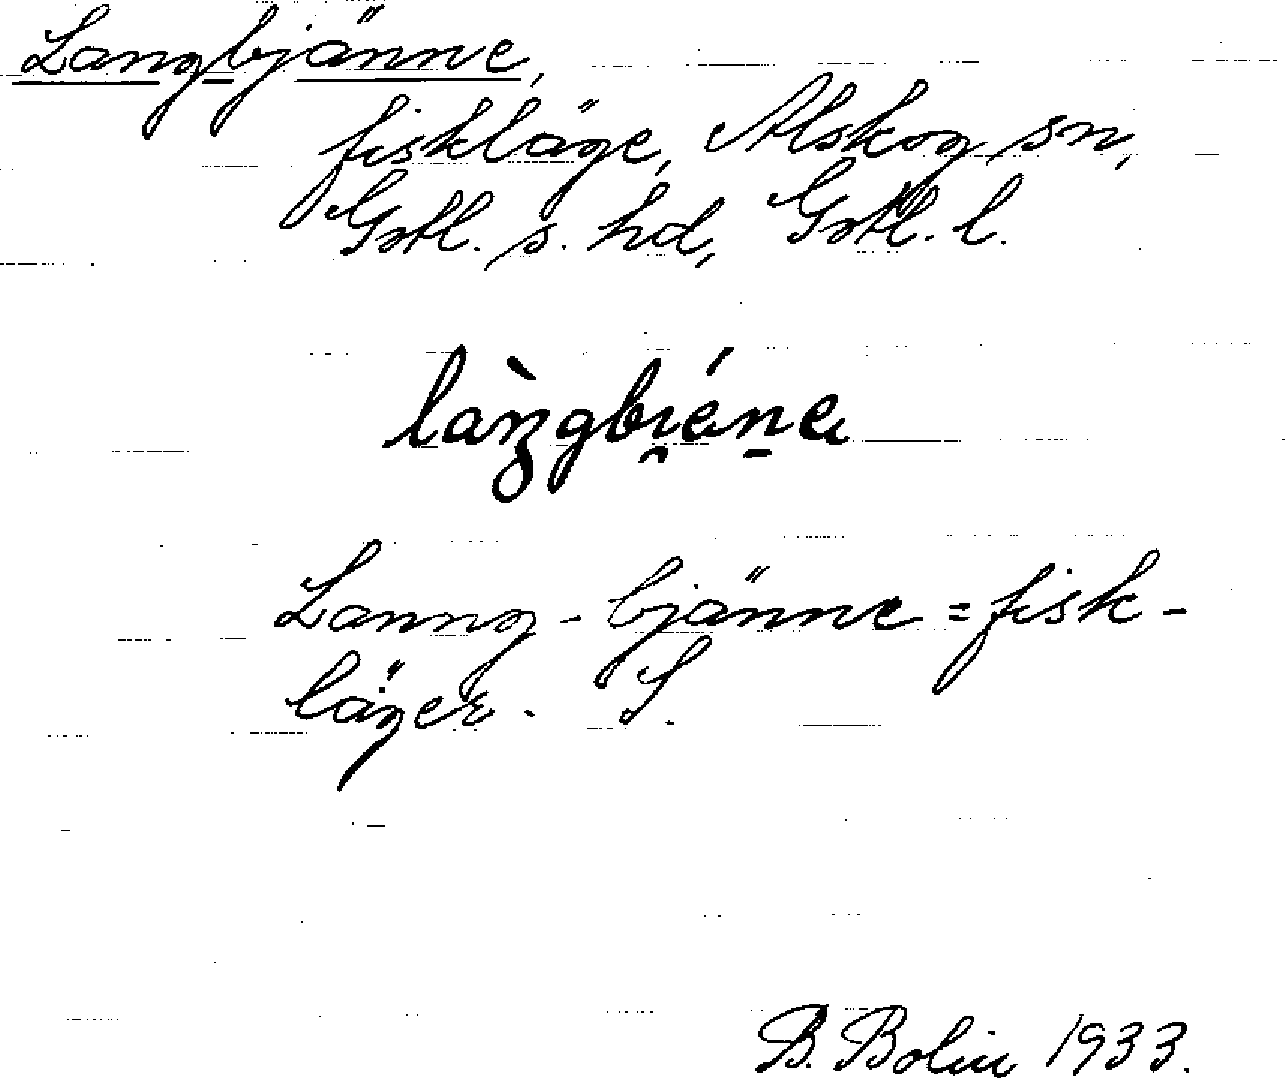 Langbjänne,
fiskläge, Alskog sn,
Gotl. s. hd, Gotl. l.
Lanng-bjänne = fisk-
läger. S.
B. Bolin 1933.